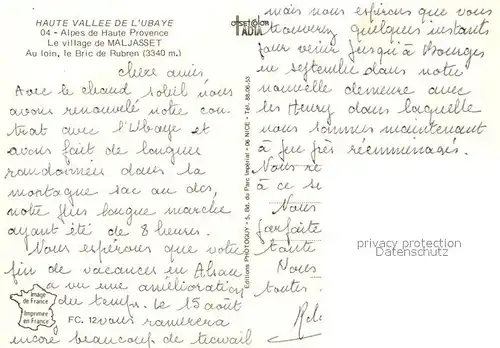 HAUTE VALLEE DE L'UBAYE
04 - Alpes de Haute Provence
Le village de MALJASSET
Au loin, le Bric de Rubren (3340 m.)
chers amis,
Avec le chaud soleil nous
avons renouvelé notre con
trat avec l'Ubaye et
avons fait de longues
randonnées dans la
montagne sac au dos,
notre plus longue marche
ayant été de 8 heures.
Nous espérons que votre
fin de vacances en Alsace
a vu une amélioration
du temps. Le 15 août
vous ramènera
encore beaucoup de travail
Image
de France
Imprimée
en France
FC. 12
Editions PHOTOGUY - 5, Bd. du Parc Impérial - 06 NICE - Tél. 88-06-53
mais nous espérons que vous
trouverez quelques instants
pour venir jusqu'à Bourges
en septembre dans notre
nouvelle demeure avec
les Henry dans laquelle
nous sommes maintenant
à peu près réemménagés.
Nous re
à ce se
Nous
parfaite
toute
Nous
toutes
privacy protection
Datenschutz